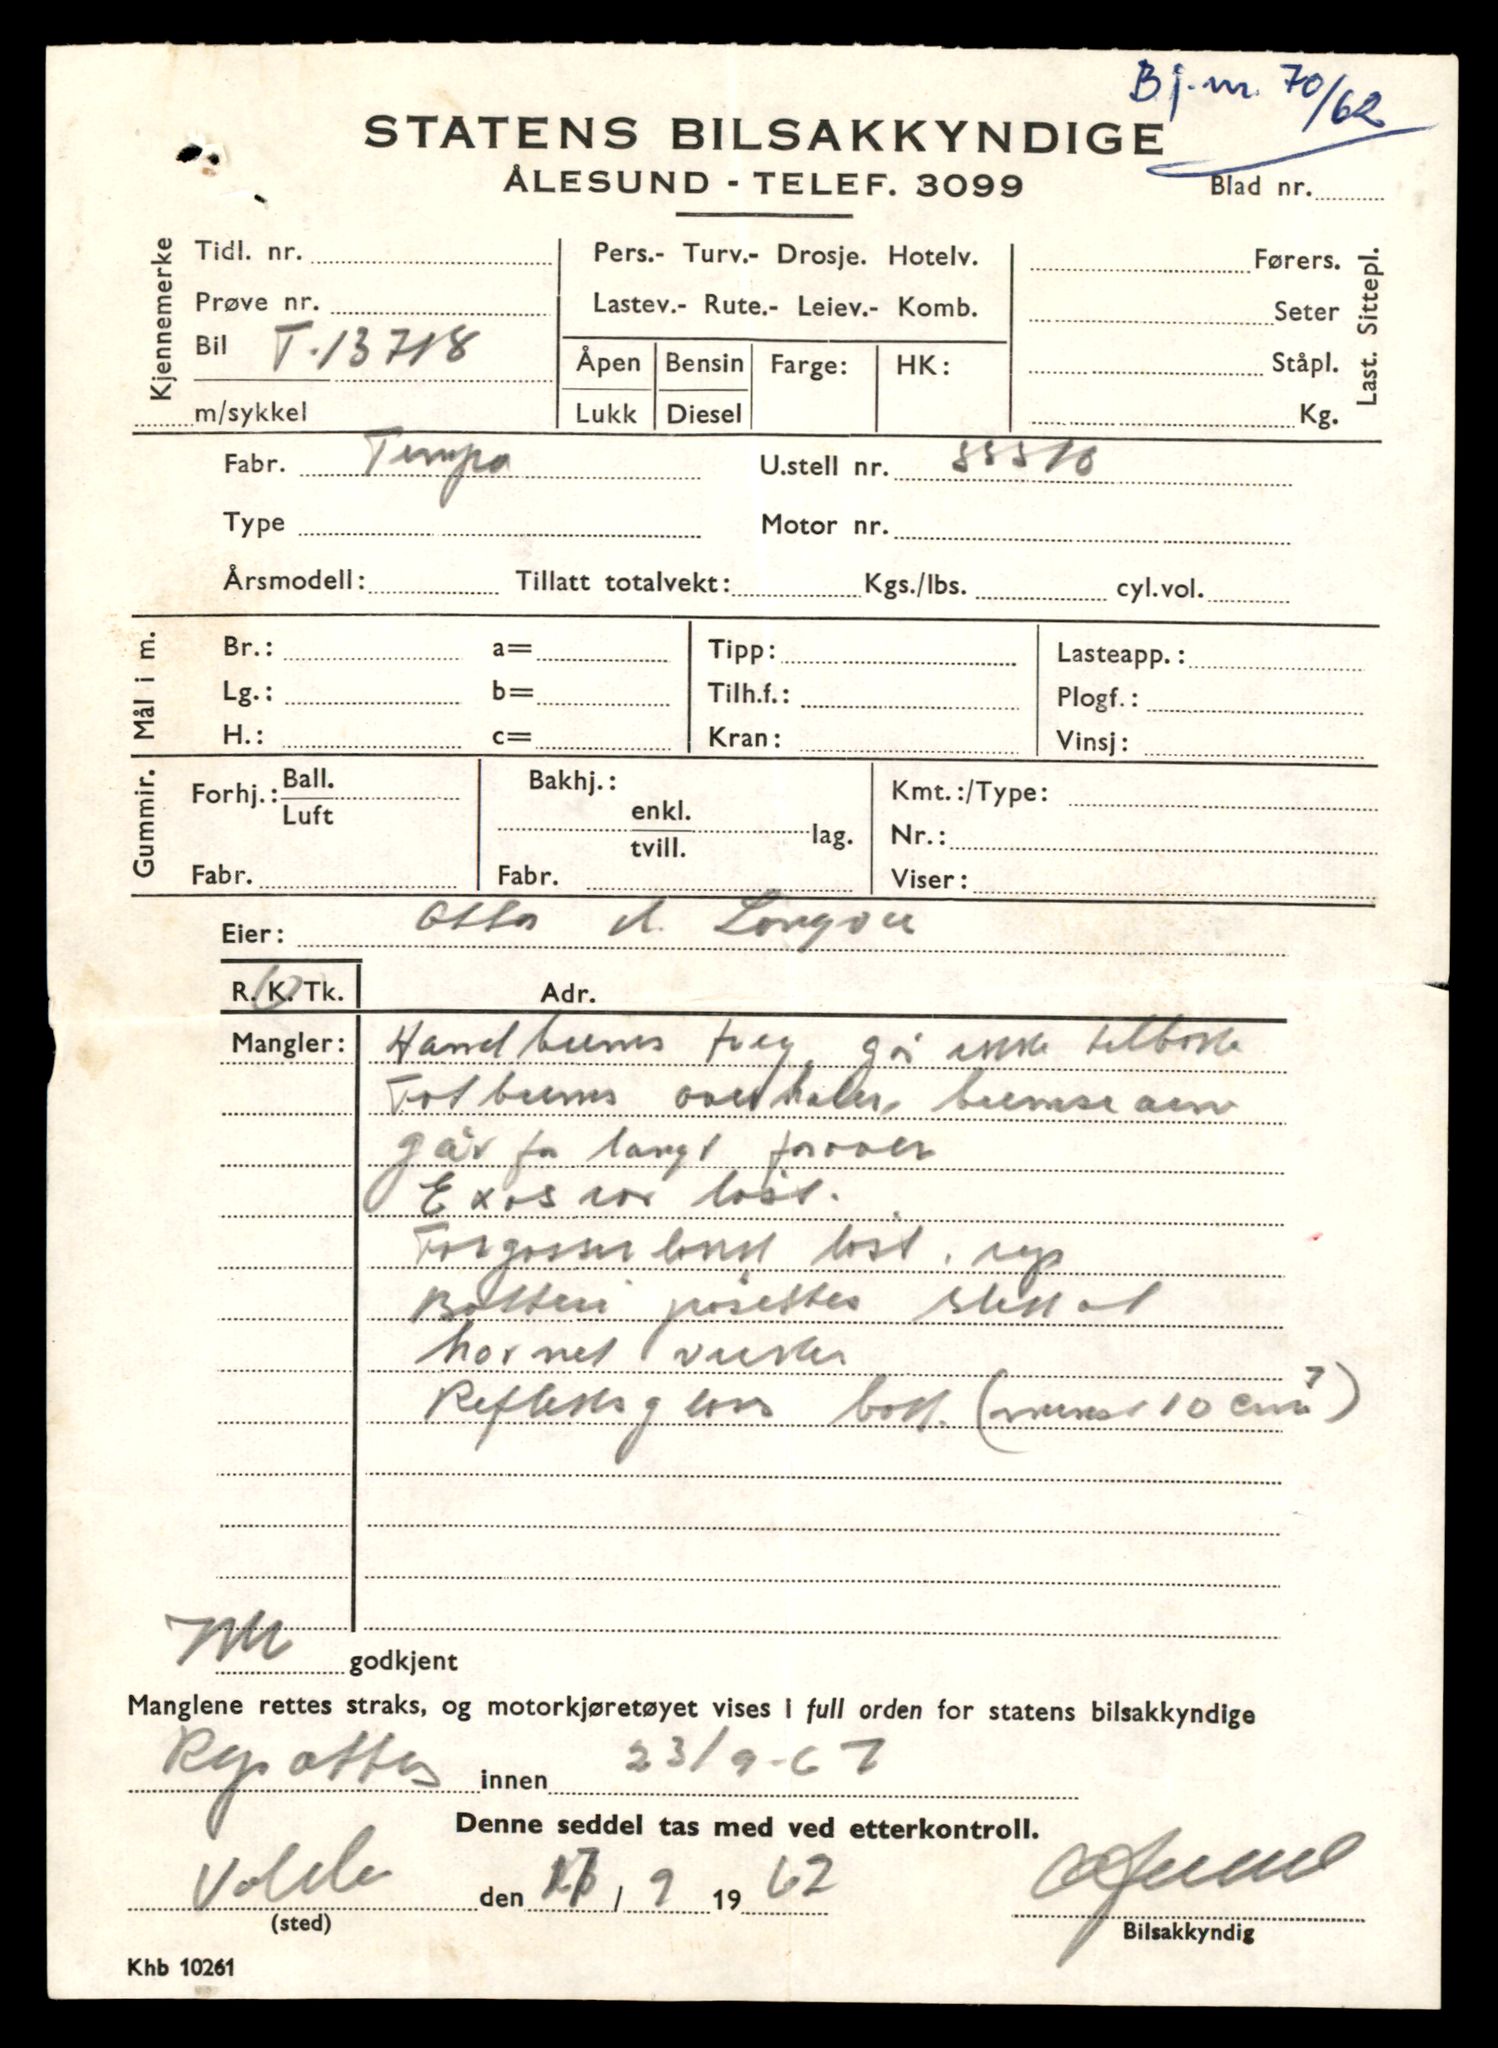 Bj.nr. 70/62
STATENS BILSAKKYNDIGE
ÅLESUND - TELEF. 3099
Blad nr.
Kjennemerke
Tidl. nr.
Prøve nr.
Bil T-13718
m/sykkel
Pers.- Turv.- Drosje. Hotelv.
Lastev.- Rute.- Leiev.- Komb.
Åpen Bensin Farge: HK:
Lukk Diesel
Førers.
Seter
Ståpl.
Kg.
Last. Sittepl.
Fabr. Tempo U.stell nr.
Type Motor nr.
Årsmodell: Tillatt totalvekt: Kgs./lbs. cyl.vol.
Mål i m.
Br.: a= Tipp: Lasteapp.:
Lg.: b= Tilh.f.: Plogf.:
H.: c= Kran: Vinsj:
Gummir.
Forhj.: Ball.
Luft
Fabr.
Bakhj.:
enkl.
tvill. lag.
Fabr.
Kmt.:/Type:
Nr.:
Viser:
Eier: Otto A.
R. K. Tk. Adr.
Mangler: Handbrems treg, går ikke tilbake
Fotbrems overhales, bremsearm
går for langt forover
Exosrør løst.
løst. rep
Batteri
hornet virker
Refleksglass bak. (minst 10 cm²)
godkjent
Manglene rettes straks, og motorkjøretøyet vises i full orden for statens bilsakkyndige
Rep attes innen 23/9-62
Denne seddel tas med ved etterkontroll.
Volda den / 9 1962
(sted)
Bilsakkyndig
Khb 10261